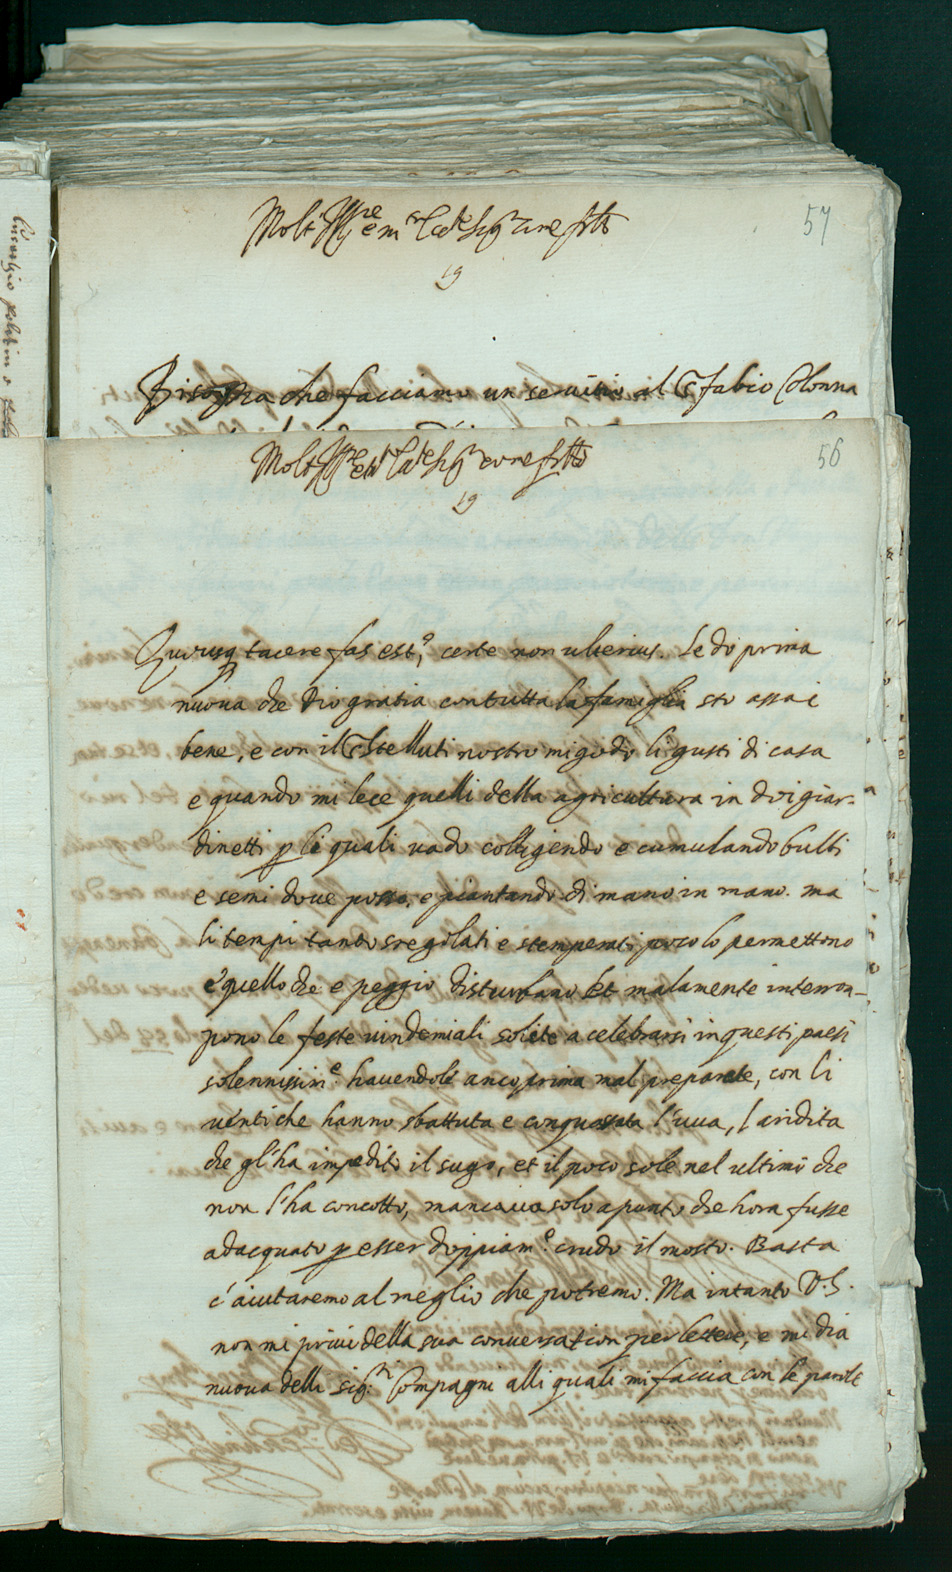 57
Molt Ill.re e m.r Ecc.te Sig.r mio fr̃llo
19
Bisogna che facciamo un servitio al S.r Fabio Colonna
56
Molt Ill.re et Ecc.te Sig.r come frĩlo
19
Quousq tacere fas est, certe non ulterius. Le do prima
nuova che Dio gratia con tutta la famiglia sto assai
bene, e con il S.r Stelluti nostro mi godo li gusti di casa
e quando mi lece quelli della agricultura in doi giar-
dinetti p li quali vado colligendo e cumulando bulbi
e semi dove posso, e piantando di mano in mano. ma
li tempi tanto sregolati e stemperati poco lo permettono
e quello che e peggio disturbano et malamente interron-
pono le feste vindemiali solite a celebrarsi in questi paesi
solennissim.e havendole anco prima mal preparate, con li
venti che hanno sbattuta e conquassata l'uva, l aridita
che gl'ha impedito il sugo, et il poco sole nel ultimo che
non l'ha concotto, mancava solo apunto che hora fusse
adacquato p esser doppiam.e crudo il mosto. Basta
c'aiutaremo al meglio che potremo. Ma intanto V.S.
non mi privi della sua conversation per lettere, e mi dia
nuova delli sig.ri Compagni alli quali mi faccia con le parole